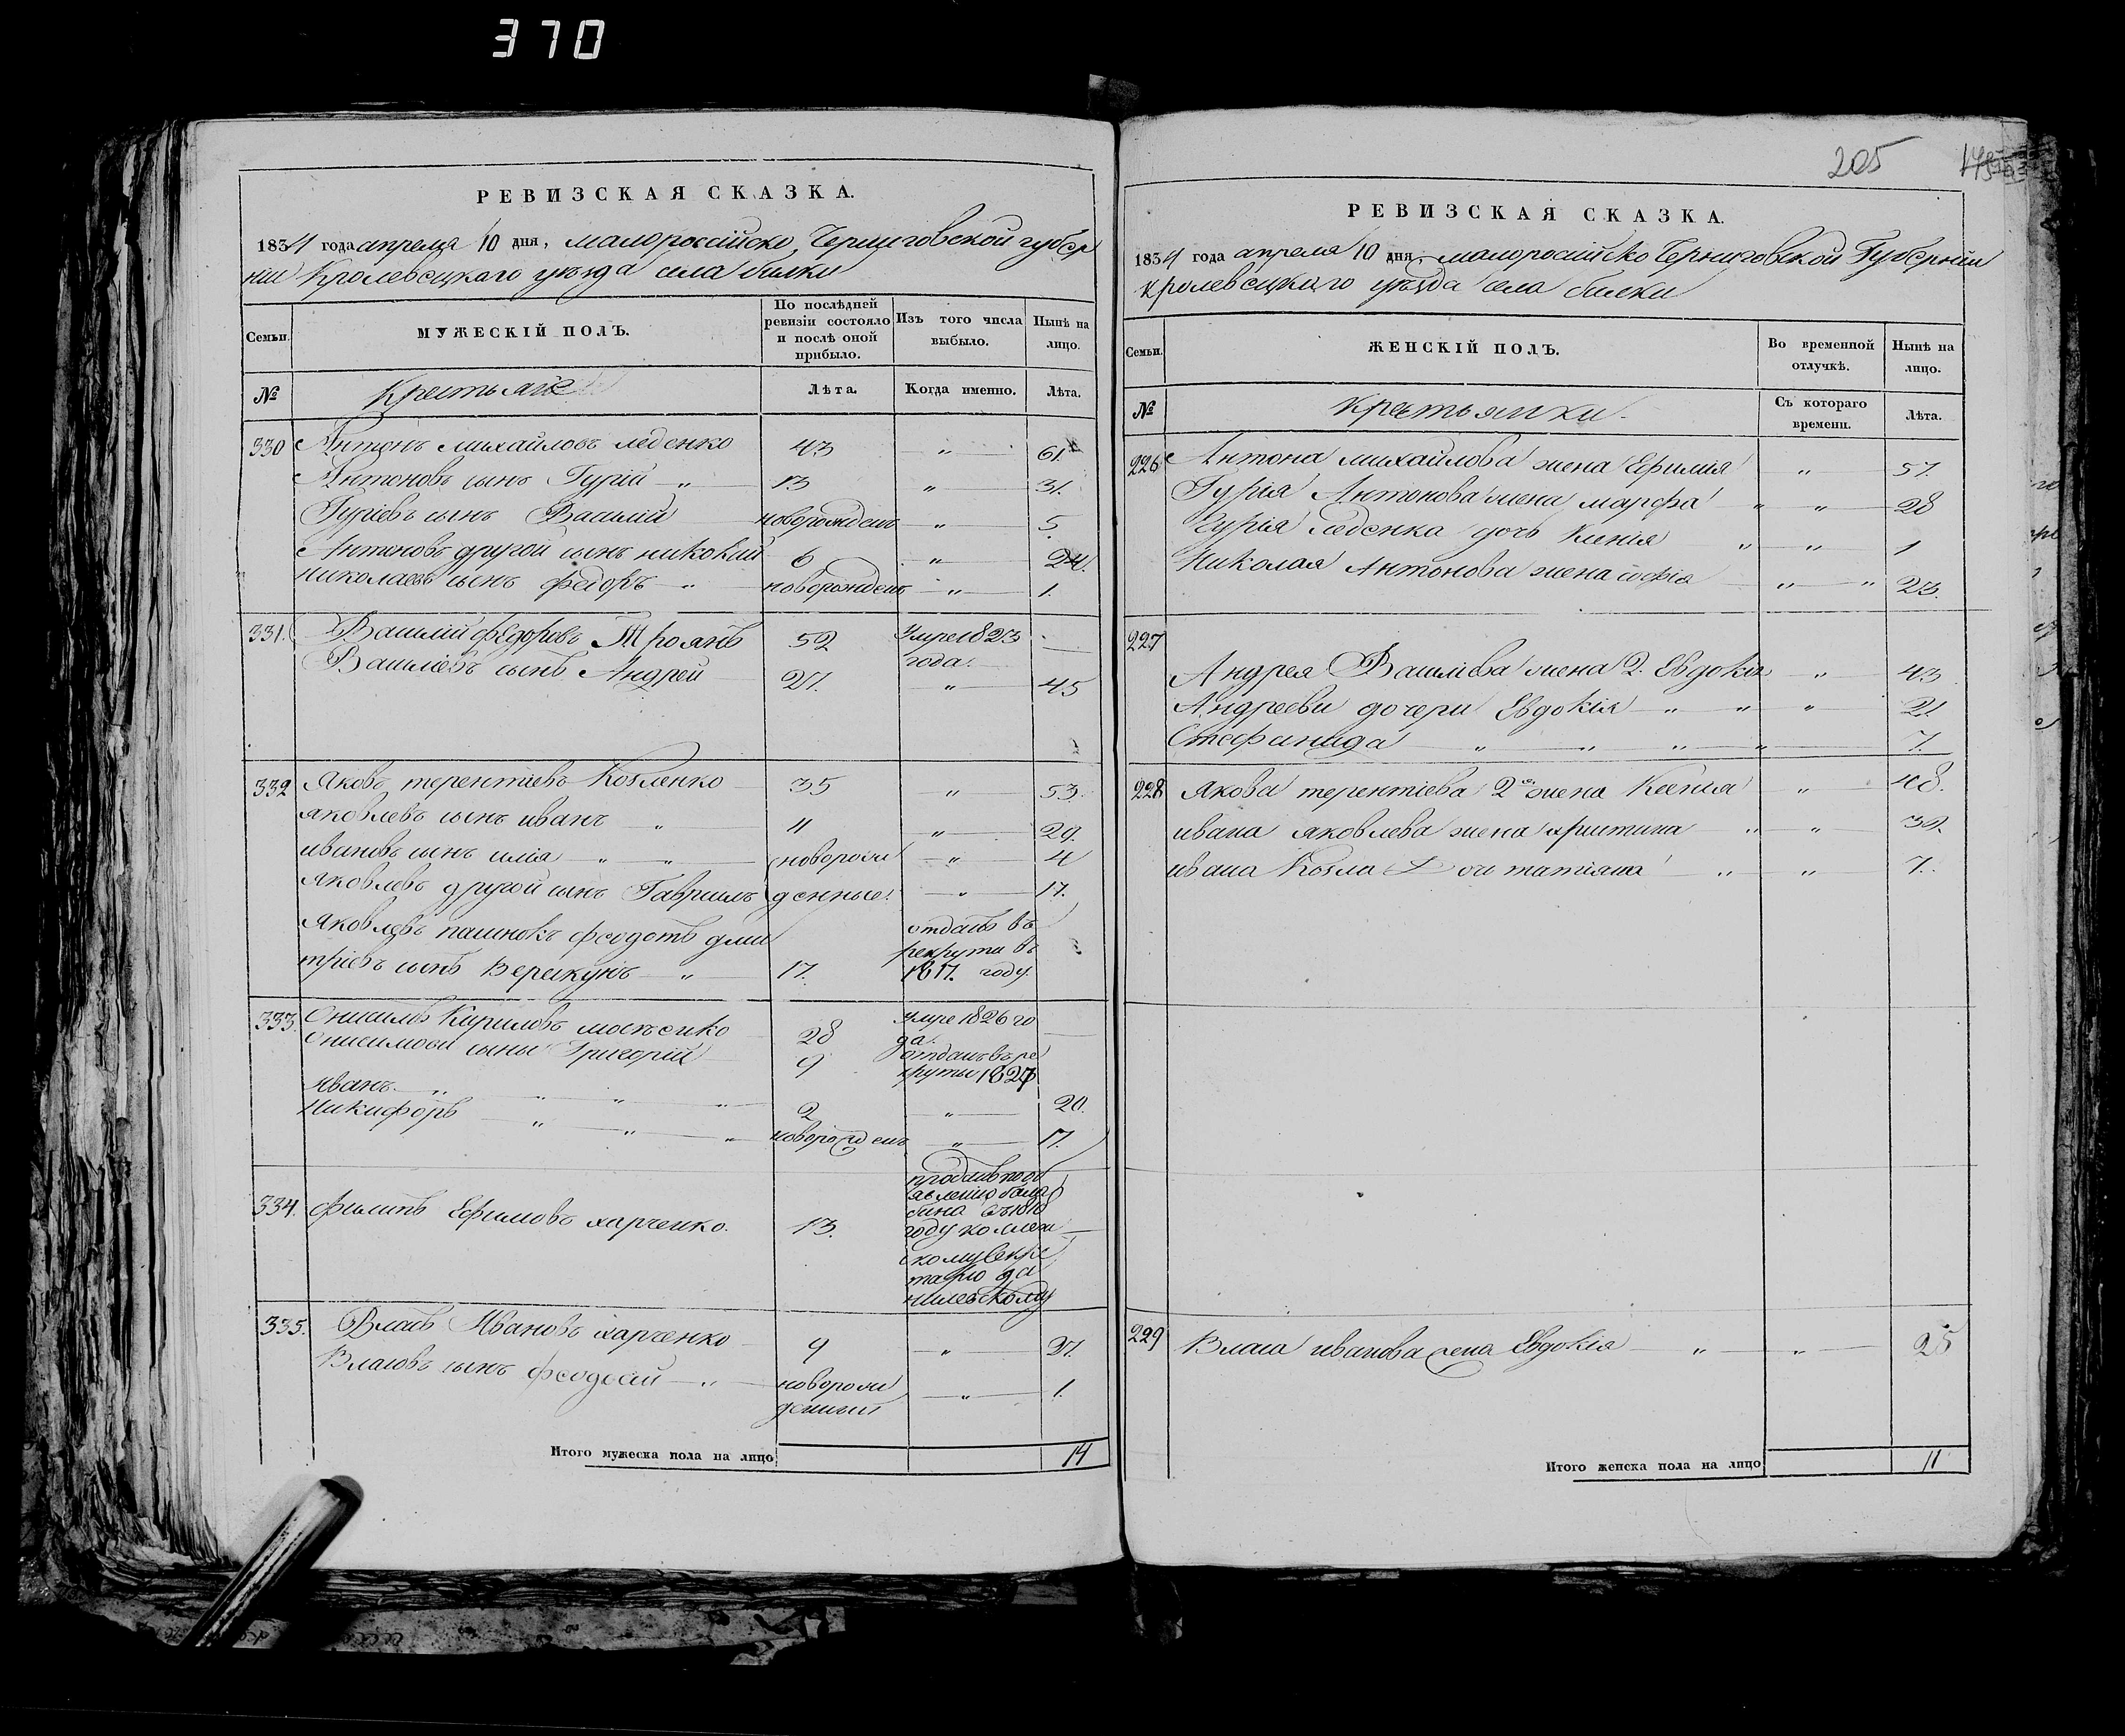 370
РЕВИЗСКАЯ СКАЗКА.
1834 года апреля 10 дня, малоросійско Черниговской губер
ніи Кролевецкаго уезда села билки
Семьи. МУЖЕСКІЙ ПОЛЪ. По послѣдней ревизіи состояло и послѣ оной прибыло. Изъ того числа выбыло. Нынѣ на лицо.
№ Крестьяне Лѣта. Когда именно. Лѣта.
330 Антонъ михайловъ леденко 43 „ 61
Антоновъ сынъ Гурій „ 13 „ 31.
Гуріевъ сынъ Василій новорожденъ „ 5.
Антоновъ другой сынъ николай 6 „ 24.
Николаевъ сынъ федоръ „ новорожденъ „ 1.
331. Василій федоровъ Троянъ 52 Умре 1823
года.
Василіевъ сынъ Андрей 27. „ 45
332 Яковъ терентіевъ Козленко 35 „ 53.
яковлевъ сынъ иванъ „ 11 „ 29.
ивановъ сынъ илія „ „ новорож „ 4
яковлевъ другой сынъ Гаврилъ денные. „ 17.
яковлевъ пасинокъ феодотъ дми отданъ въ
рекруты въ
тріевъ сынъ Верикунъ „ 17. 1817. году
333. Онисимъ Кириловъ 28 Умре 1826 го
да.
Онисимови сыны Григорій 9 отданъ въ ре
круты 1827
иванъ „ „ „ „ 2 „ 20.
Никифоръ „ „ „ новорожденъ „ 17.
334. Филипъ Ефимовъ харченко. 13.
году
скому секре
тарю да
нилевскому
335. Власъ Ивановъ харченко 9 „ 27.
Власовъ сынъ феодосій „ новорож
денный „ 1.
Итого мужеска пола на лицо 14
205
РЕВИЗСКАЯ СКАЗКА.
1834 года апреля 10 дня, малоросійско Черниговской Губерніи
кролевецкаго уезда села билки
Семьи. ЖЕНСКІЙ ПОЛЪ. Во временной отлучкѣ. Нынѣ на лицо.
№ Крестьянки. Съ котораго времени. Лѣта.
226 Антона михайлова жена Ефимія „ 57.
Гурія Антонова жена марфа „ „ 28
Гурія Леденка дочь Ксенія „ „ 1
Николая Антонова жена софія „ „ 23.
227
Андрея Василіева жена 2. Евдокія „ 43
Андрееви дочери Евдокія „ „ „ 21.
Стефанида „ „ „ „ 7.
228 Якова терентіева 2я жена Ксенія „ 48.
ивана яковлева жена христина „ „ 30.
ивана Козла Дочь татіяна „ „ 7.
229 Власа иванова жена Евдокія „ „ 25
Итого женска пола на лицо 11